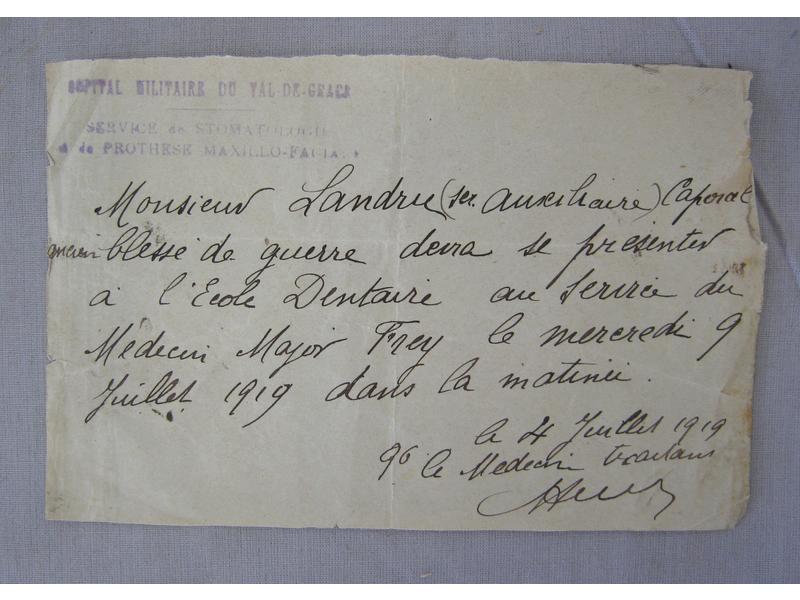 HOPITAL MILITAIRE DU VAL-DE-GRACE
SERVICE de STOMATOLOGIE
& de PROTHESE MAXILLO-FACIALE
Monsieur Landru (ser. auxiliaire) Caporal
ancien blessé de guerre devra se présenter
à l'Ecole Dentaire au service du
Médecin Major Frey le mercredi 9
Juillet 1919 dans la matinée.
le 4 Juillet 1919
le Médecin traitant